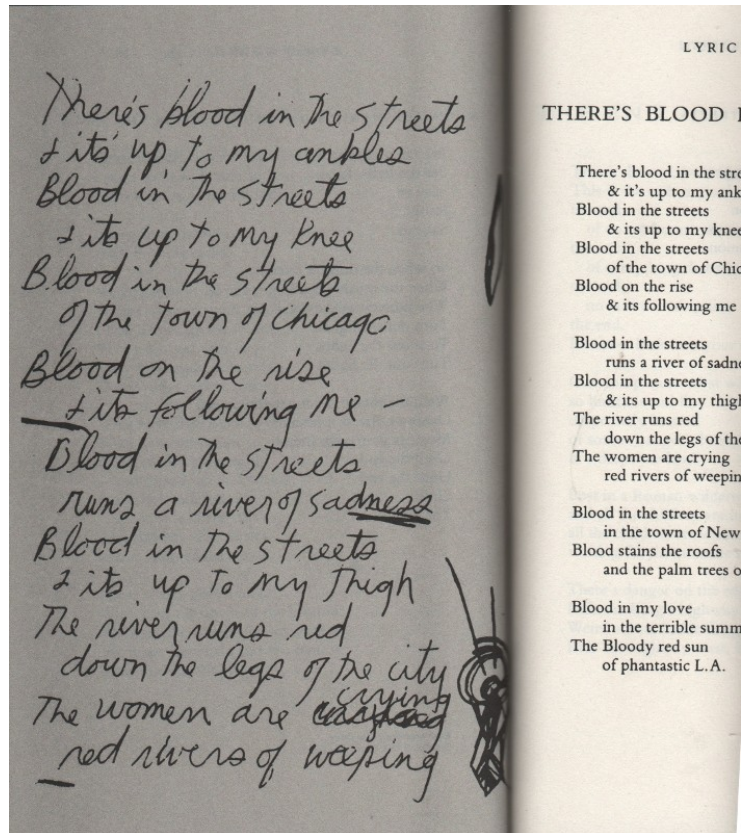 There's blood in the streets
& its up to my ankles
Blood in the streets
& its up to my knee
Blood in the streets
of the town of Chicago
Blood on the rise
& its following me –
Blood in the streets
runs a river of sadness
Blood in the streets
& its up to my thigh
The river runs red
down the legs of the city
The women are crying
red rivers of weeping
LYRIC
THERE'S BLOOD
There's blood in the stre
& it's up to my ank
Blood in the streets
& its up to my knee
Blood in the streets
of the town of Chic
Blood on the rise
& its following me
Blood in the streets
runs a river of sadne
Blood in the streets
& its up to my thigh
The river runs red
down the legs of the
The women are crying
red rivers of weepin
Blood in the streets
in the town of New
Blood stains the roofs
and the palm trees o
Blood in my love
in the terrible summ
The Bloody red sun
of phantastic L.A.